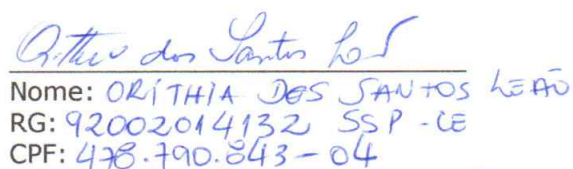 Orithia dos Santos Leão
Nome: ORITHIA DES SANTOS LEÃO
RG: 92002014132 SSP-CE
CPF: 478.790.843-04